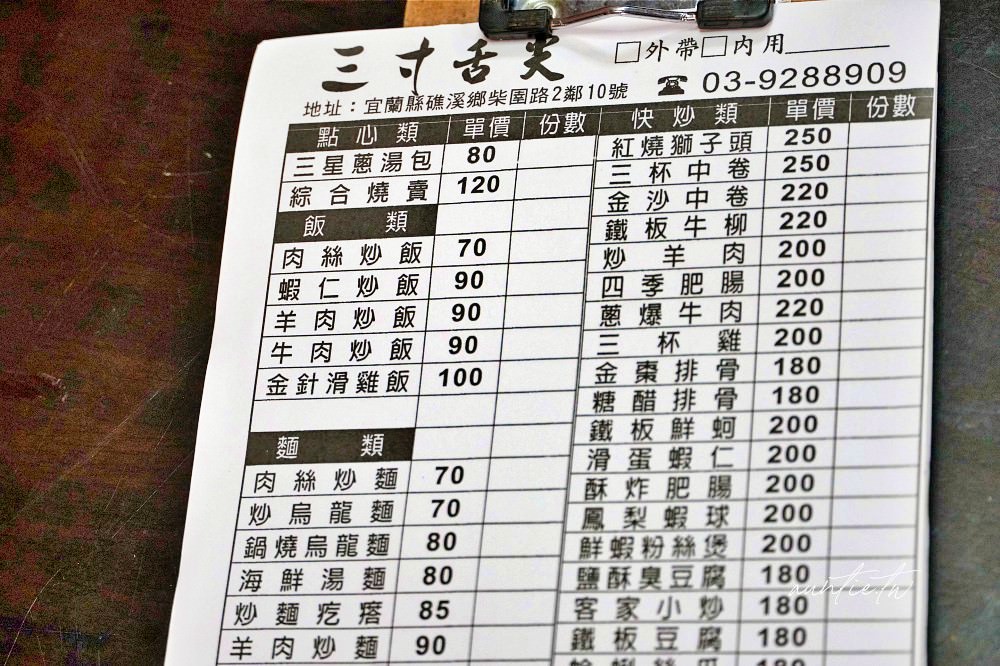 三寸舌尖
□外帶□內用
地址：宜蘭縣礁溪鄉柴圍路2鄰10號
☎ 03-9288909
點心類 單價 份數
三星蔥湯包 80
綜合燒賣 120
飯類
肉絲炒飯 70
蝦仁炒飯 90
羊肉炒飯 90
牛肉炒飯 90
金針滑雞飯 100
麵類
肉絲炒麵 70
炒烏龍麵 70
鍋燒烏龍麵 80
海鮮湯麵 80
炒麵疙瘩 85
羊肉炒麵 90
快炒類 單價 份數
紅燒獅子頭 250
三杯中卷 250
金沙中卷 220
鐵板牛柳 220
炒羊肉 200
四季肥腸 200
蔥爆牛肉 220
三杯雞 200
金棗排骨 180
糖醋排骨 180
鐵板鮮蚵 200
滑蛋蝦仁 200
酥炸肥腸 200
鳳梨蝦球 200
鮮蝦粉絲煲 200
鹽酥臭豆腐 180
客家小炒 180
鐵板豆腐 180
180